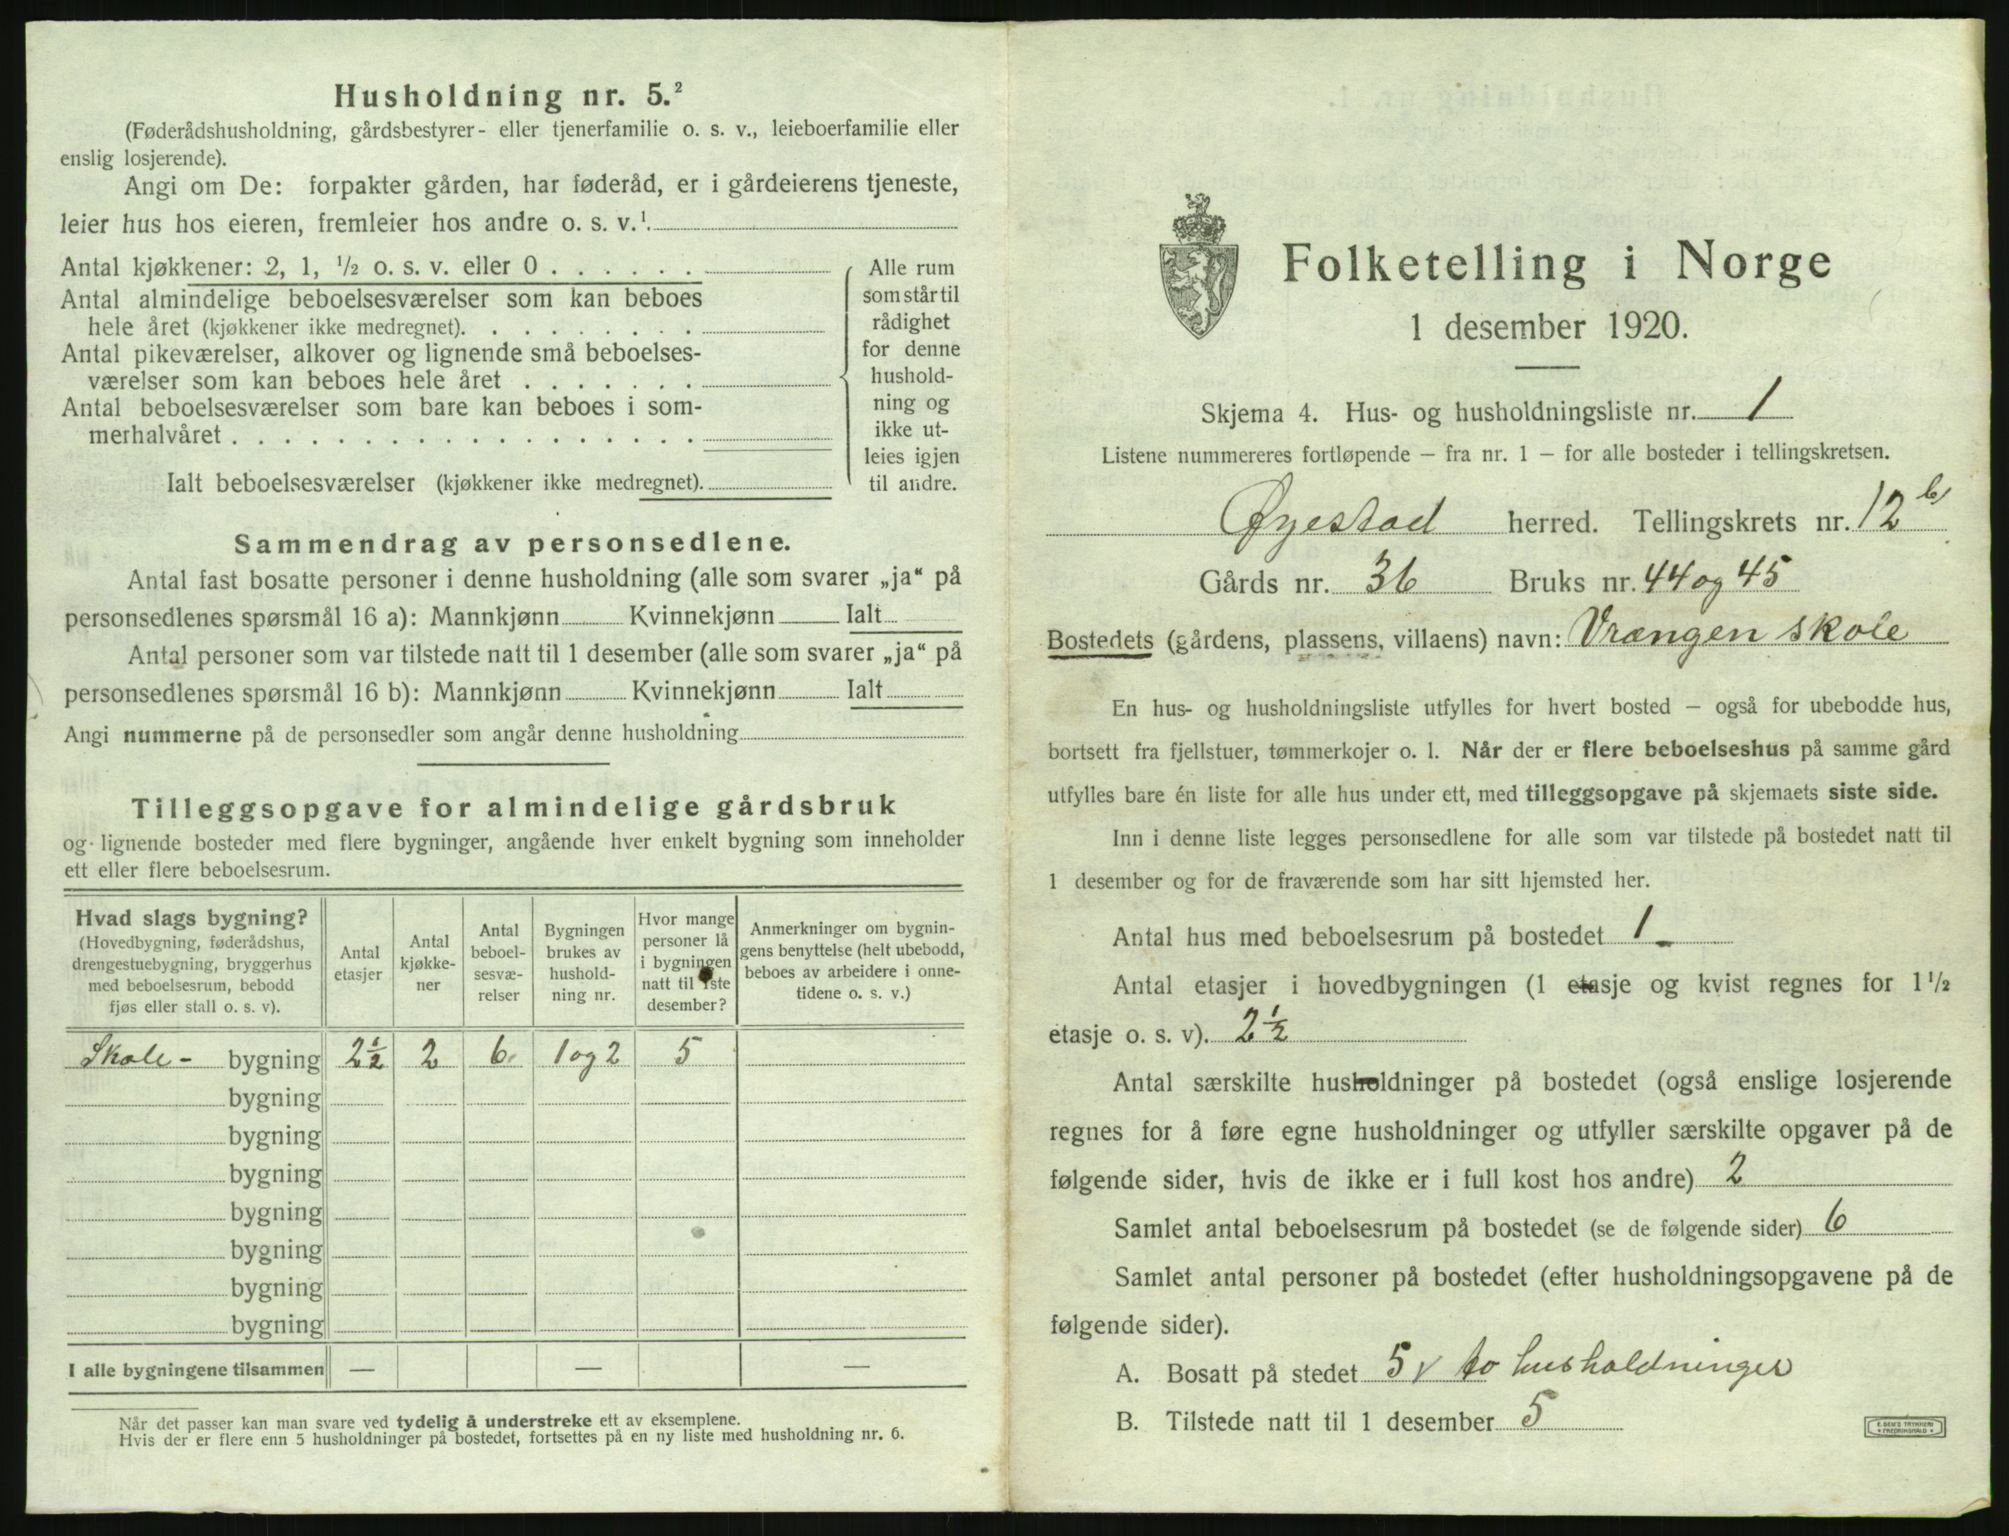 Husholdning nr. 5.²
(Føderådshusholdning, gårdsbestyrer- eller tjenerfamilie o. s. v., leieboerfamilie eller
enslig losjerende).
Angi om De: forpakter gården, har føderåd, er i gårdeierens tjeneste,
leier hus hos eieren, fremleier hos andre o. s. v.¹
Antal kjøkkener: 2, 1, ½ o. s. v. eller 0 . . . . . .
Antal almindelige beboelsesværelser som kan beboes
hele året (kjøkkener ikke medregnet). . . . . . . . .
Antal pikeværelser, alkover og lignende små beboelses-
værelser som kan beboes hele året . . . . . . .
Antal beboelsesværelser som bare kan beboes i som-
merhalvåret . . . . . . . . . . . . . . . . . .
Ialt beboelsesværelser (kjøkkener ikke medregnet).
Alle rum
som står til
rådighet
for denne
hushold-
ning og
ikke ut-
leies igjen
til andre.
Sammendrag av personsedlene.
Antal fast bosatte personer i denne husholdning (alle som svarer „ja“ på
personsedlenes spørsmål 16 a): Mannkjønn Kvinnekjønn Ialt
Antal personer som var tilstede natt til 1 desember (alle som svarer „ja“ på
personsedlenes spørsmål 16 b): Mannkjønn Kvinnekjønn Ialt
Angi nummerne på de personsedler som angår denne husholdning
Tilleggsopgave for almindelige gårdsbruk
og lignende bosteder med flere bygninger, angående hver enkelt bygning som inneholder
ett eller flere beboelsesrum.
Hvad slags bygning?
(Hovedbygning, føderådshus,
drengestuebygning, bryggerhus
med beboelsesrum, bebodd
fjøs eller stall o. s. v).
Antal
etasjer
Antal
kjøkke-
ner
Antal
beboel-
sesvæ-
relser
Bygningen
brukes av
hushold-
ning nr.
Hvor mange
personer lå
i bygningen
natt til 1ste
desember?
Anmerkninger om bygnin-
gens benyttelse (helt ubebodd,
beboes av arbeidere i onne-
tidene o. s. v.)
Skole- bygning 2½ 2 6 1 og 2 5
bygning
bygning
bygning
bygning
bygning
bygning
bygning
I alle bygningene tilsammen — — —
Når det passer kan man svare ved tydelig å understreke ett av eksemplene.
Hvis der er flere enn 5 husholdninger på bostedet, fortsettes på en ny liste med husholdning nr. 6.
Folketelling i Norge
1 desember 1920.
Skjema 4. Hus- og husholdningsliste nr. 1
Listene nummereres fortløpende — fra nr. 1 — for alle bosteder i tellingskretsen.
Øyestad herred. Tellingskrets nr. 12 b
Gårds nr. 36 Bruks nr. 44 og 45
Bostedets (gårdens, plassens, villaens) navn: Vrængen skole
En hus- og husholdningsliste utfylles for hvert bosted — også for ubebodde hus,
bortsett fra fjellstuer, tømmerkojer o. l. Når der er flere beboelseshus på samme gård
utfylles bare én liste for alle hus under ett, med tilleggsopgave på skjemaets siste side.
Inn i denne liste legges personsedlene for alle som var tilstede på bostedet natt til
1 desember og for de fraværende som har sitt hjemsted her.
Antal hus med beboelsesrum på bostedet 1
Antal etasjer i hovedbygningen (1 etasje og kvist regnes for 1½
etasje o. s. v). 2½
Antal særskilte husholdninger på bostedet (også enslige losjerende
regnes for å føre egne husholdninger og utfyller særskilte opgaver på de
følgende sider, hvis de ikke er i full kost hos andre) 2
Samlet antal beboelsesrum på bostedet (se de følgende sider) 6
Samlet antal personer på bostedet (efter husholdningsopgavene på de
følgende sider).
A. Bosatt på stedet 5 to husholdninger
B. Tilstede natt til 1 desember 5